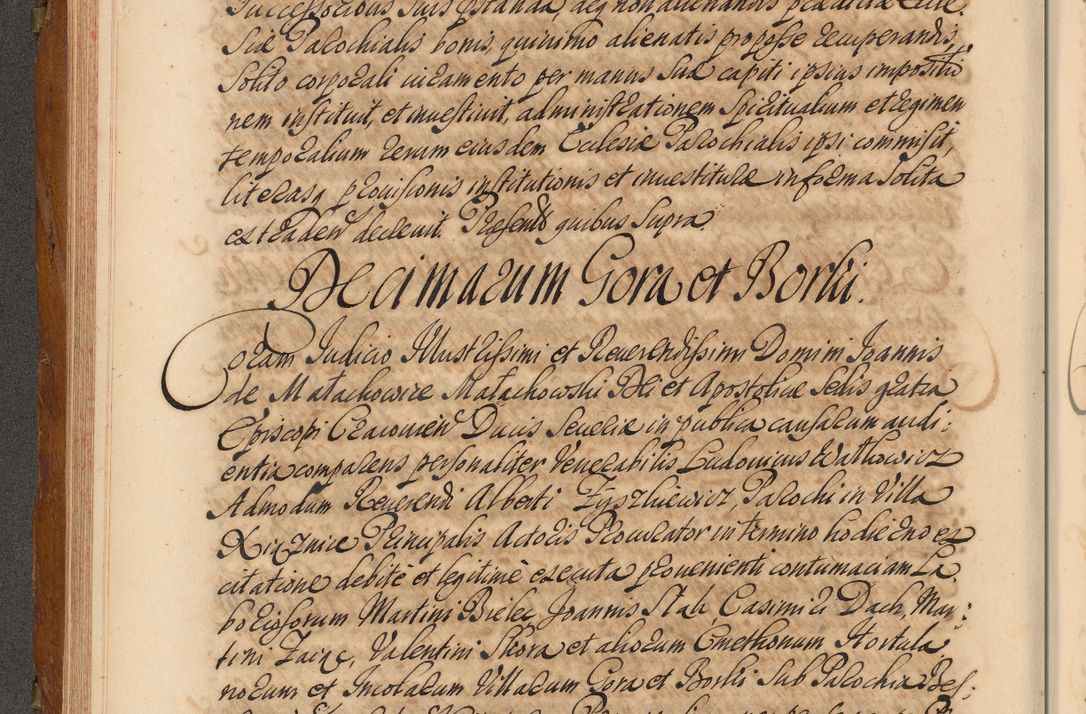 Successoribus suis præstanda, ac non alienandis prædictæ Eccle:
siæ Parochialis bonis, quinimo alienatis pro posse recuperandis,
solito corporali iuramento per manus suæ capiti ipsius impositio
nem instituit, et investiuit, administrationem spiritualium et regimen
temporalium rerum eiusdem Ecclesiæ Parochialis ipsi commisit,
literasq provisionis institutionis et investituræ in forma solita
extraden decrevit. Præsentb quibus supra.
Decimarum Gora et Borki.
Coram Iudicio Illustrissimi et Reverendissimi Domini Ioannis
de Małachowice Małachowski Dei et Apostolicæ Sedis gratia
Episcopi Cracovien Ducis Severiæ in publica causarum audi:
entia comparens personaliter Venerabilis Ludovicus Walkowicz
Admodum Reverendi Alberti Parochi in Villa
Xiąznice Principalis Actoris Procurator in termino hodierno ex
citatione debitè et legitimè executa provenienti contumaciam La
boriosorum Martini Bielec, Ioannis Stab, Casimiri Dach, Mar:
tini Zaiąc, Valentini Skora et aliorum Cmethonum Hortula
norum et Incolarum Villarum Gora et Borki sub Parochia Bes: